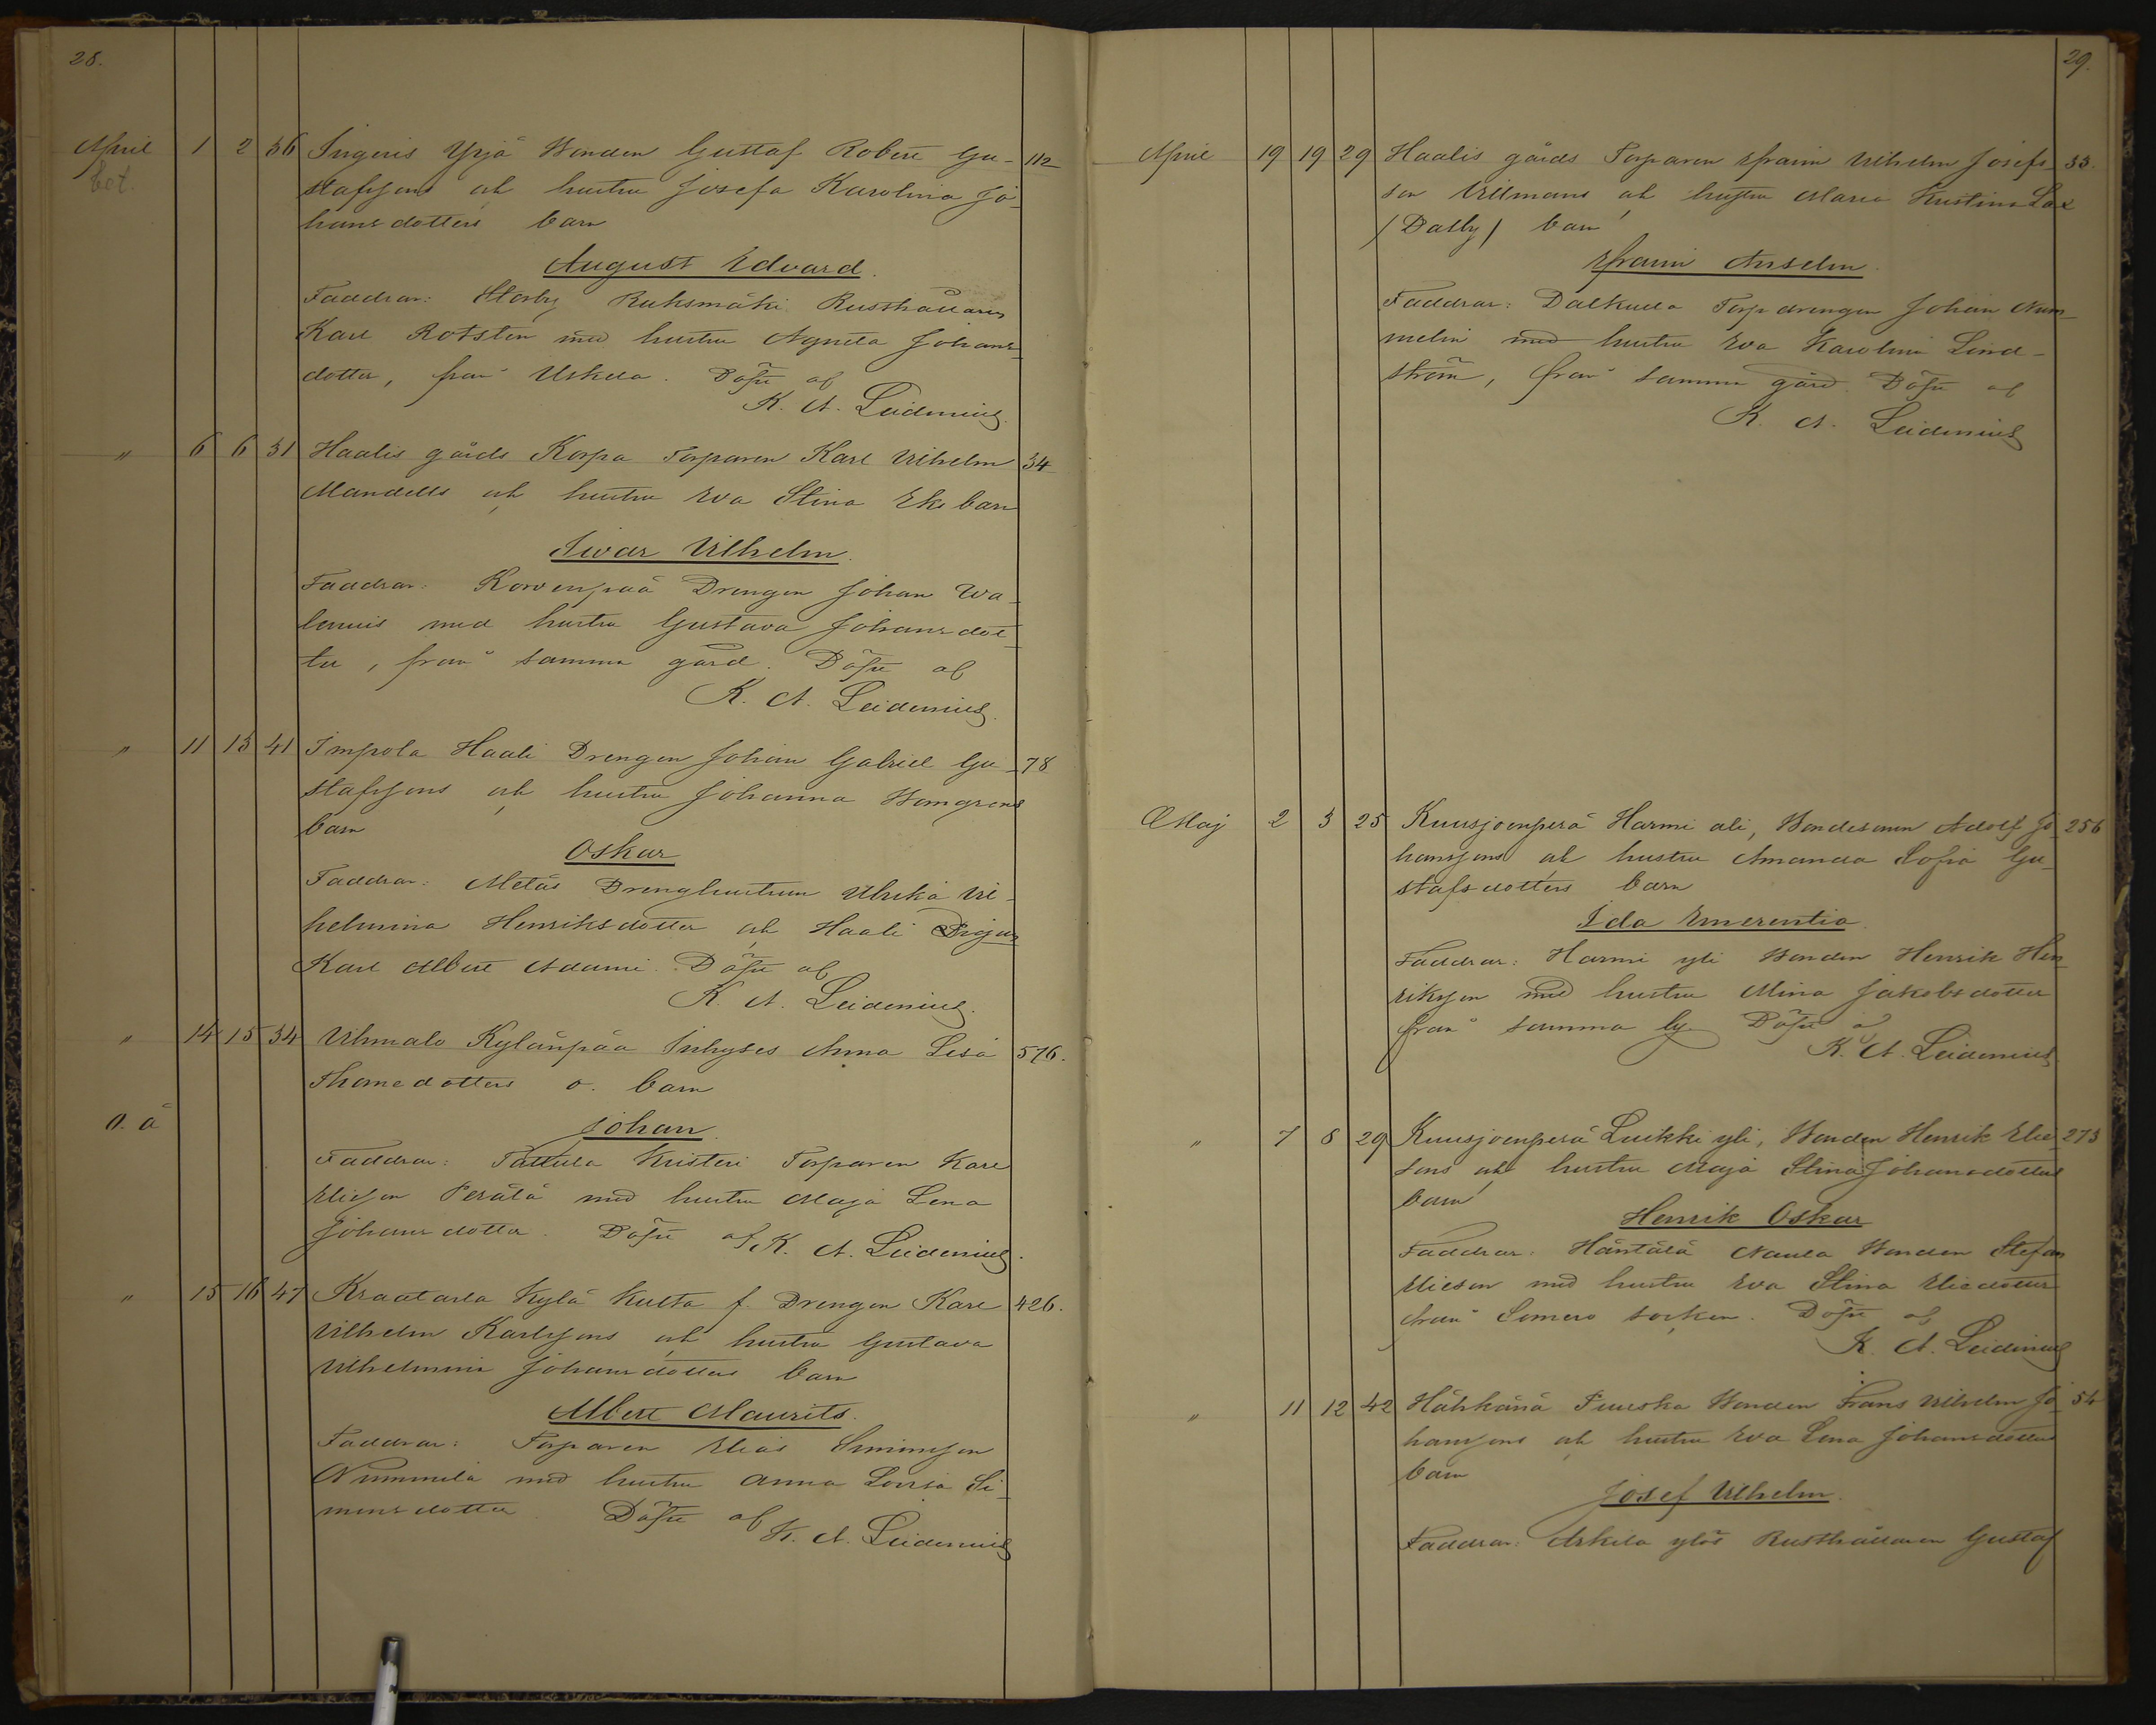 28.
April 1 2 36 Ingeris Yrjä Bonden Gustaf Robert Gu- 112
bet. stafssons och hustru Josefa Karolina Jo-
hansdotters barn
August Edvard.
Faddrar: Storby Ruhsmäki Rusthållaren
Karl Rotsten med hustru Agneta Johans-
dotter, från Uskela. Döpt af
K. A. Leidenius.
" 6 6 31 Haalis gårds Korpa Torparen Karl Vilhelm 34
Mandells och hustru Eva Stina Eks barn
Iwar Vilhelm.
Faddrar: Korvenpää Drengen Johan Wa-
lenius med hustru Gustava Johansdot-
ter, från samma gård. Döpt af
K. A. Leidenius.
" 11 13 41 Impola Haali Drengen Johan Gabriel Gu- 78
stafssons och hustru Johanna Homgrens
barn
Oskar
Faddrar: Metäs Drenghustrun Ulrika Vil-
helmina Henriksdotter och Haali
Karl Albert Adami. Döpt af
K. A. Leidenius.
" 14 15 34 Uhmalo Kylänpää Inhyses Anna Lesa 576.
Thomedotters o. barn
o. ä
Johan.
Faddrar: Tattula Kristeri Torparen Karl
Eliesson Perälä med hustru Maja Lena
Johansdotter. Döpt af K. A. Leidenius.
" 15 16 47 Kraatarla Kylä Kulta f. Drengen Karl 426.
Vilhelm Karlssons och hustru Gustava
Vilhelmina Johansdotters barn
Albert Maurits.
Faddrar: Torparen Elias Simonsson
Nummila med hustru Anna Lovisa Si-
monsdotter. Döpt af
K. A. Leidenius
29.
April 19 19 29 Haalis gårds Torparen Efraim Vilhelm Josefs- 33.
son Villmans och hustru Maria Kristina Lax
/Dalby/ barn
Efraim Anselm.
Faddrar: Dalkulla Torpdrengen Johan Num-
melin med hustru Eva Karolina Lind-
ström, från samma gård. Döpt af
K. A. Leidenius
Maj 2 3 25 Kuusjoenperä Harmi ali, Bondesonen Adolf Jo- 256
hanssons och hustru Amanda Sofia Gu-
stafsdotters barn
Ida Emerentia.
Faddrar: Harmi yli Bonden Henrik Hen-
riksson med hustru Mina Jakobsdotter
från samma by Döpt af
K. A. Leidenius
" 7 8 29 Kuusjoenperä Luikki yli, Bonden Henrik Elie- 273
sons och hustru Maja Stina Johansdotters
barn
Henrik Oskar
Faddrar: Häntälä Naula Bonden Stefan
Elieson med hustru Eva Stina Eliedotter
från Somero socken. Döpt af
K. A. Leidenius
" 11 12 42 Hähkänä Puuska Bonden Frans Vilhelm Jo- 54
hanssons och hustru Eva Lena Johansdotters
barn
Josef Vilhelm.
Faddrar: Arkila ylös Rusthållaren Gustaf